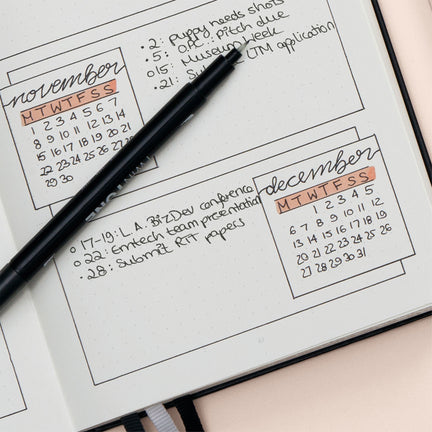 november
MTWTFSS
1 2 3 4 5 6 7
8 9 10 11 12 13 14
15 16 17 18 19 20 21
22 23 24 25 26 27
29 30
• 2: puppy needs shots
• 5: pitch due
o 15: Museum Week
• 21: application
december
MTWTFSS
1 2 3 4 5
6 7 8 9 10 11 12
13 14 15 16 17 18 19
20 21 22 23 24 25 26
27 28 29 30 31
o 17-19: L.A. BizDev conference
o 22: Emtech team presentation
• 28: Submit RTT papers